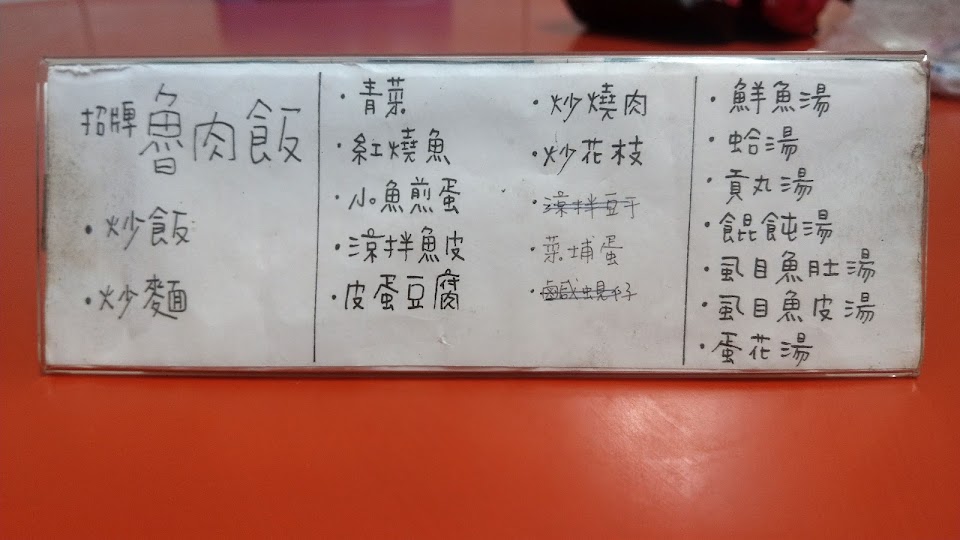 招牌魯肉飯
·炒飯
·炒麵
·青菜
·紅燒魚
·小魚煎蛋
·涼拌魚皮
·皮蛋豆腐
·炒燒肉
·炒花枝
·涼拌豆干
·菜埔蛋
·鹹蜆仔
·鮮魚湯
·蛤湯
·貢丸湯
·餛飩湯
·虱目魚肚湯
·虱目魚皮湯
·蛋花湯